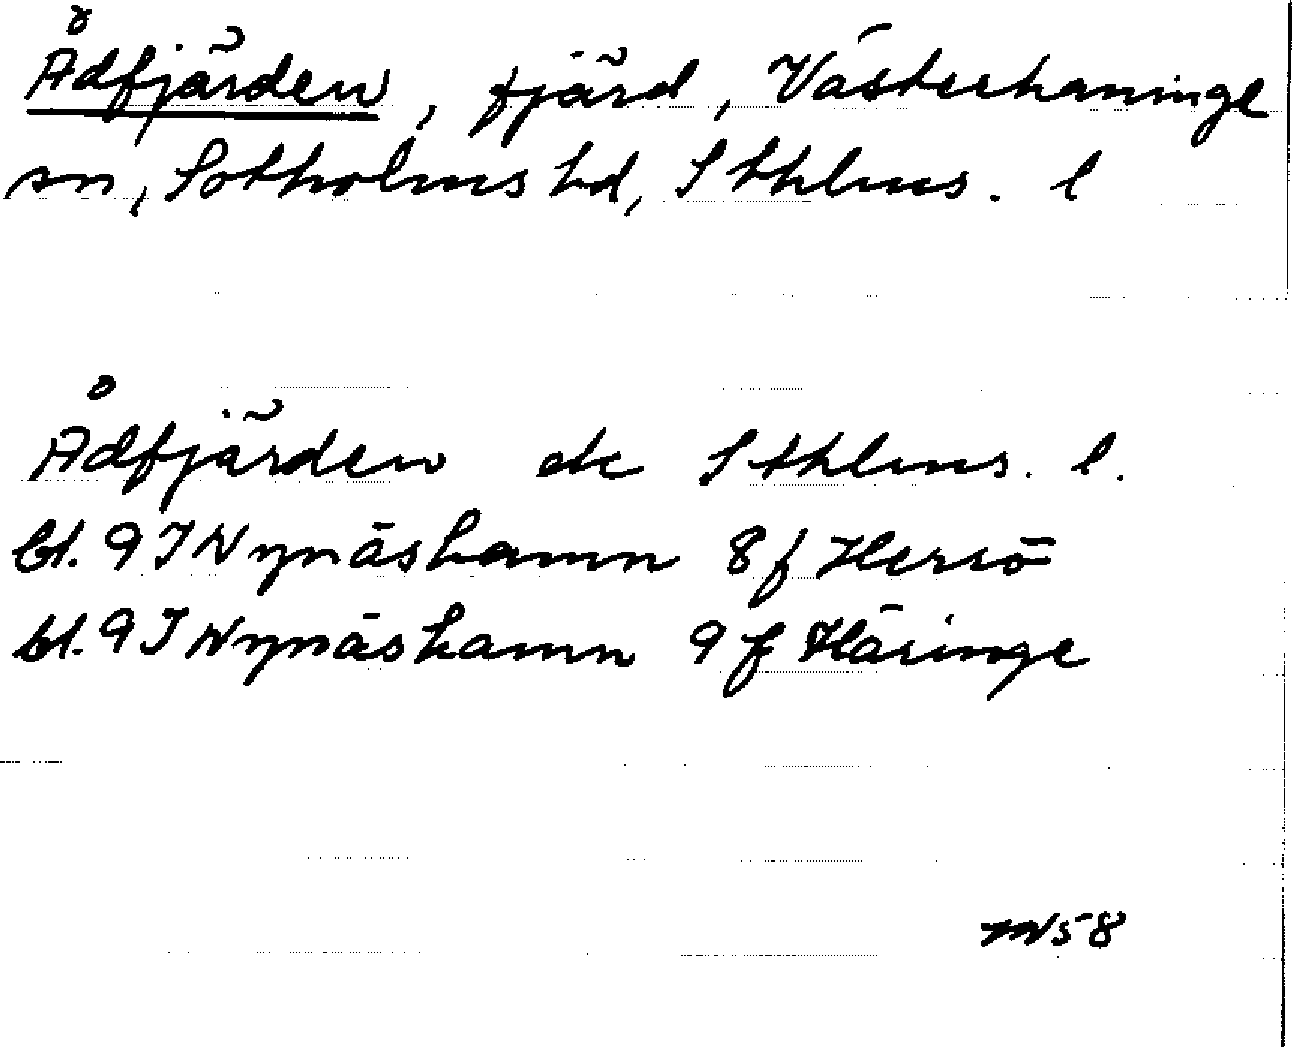 Ådfjärden, fjärd, Västerhaninge
sn, Sotholms hd, Sthlms. l
Ådfjärden etc Sthlms. l.
bl. 9 I Nynäshamn 8 f Hersö
bl. 9 I Nynäshamn 9 f Häringe